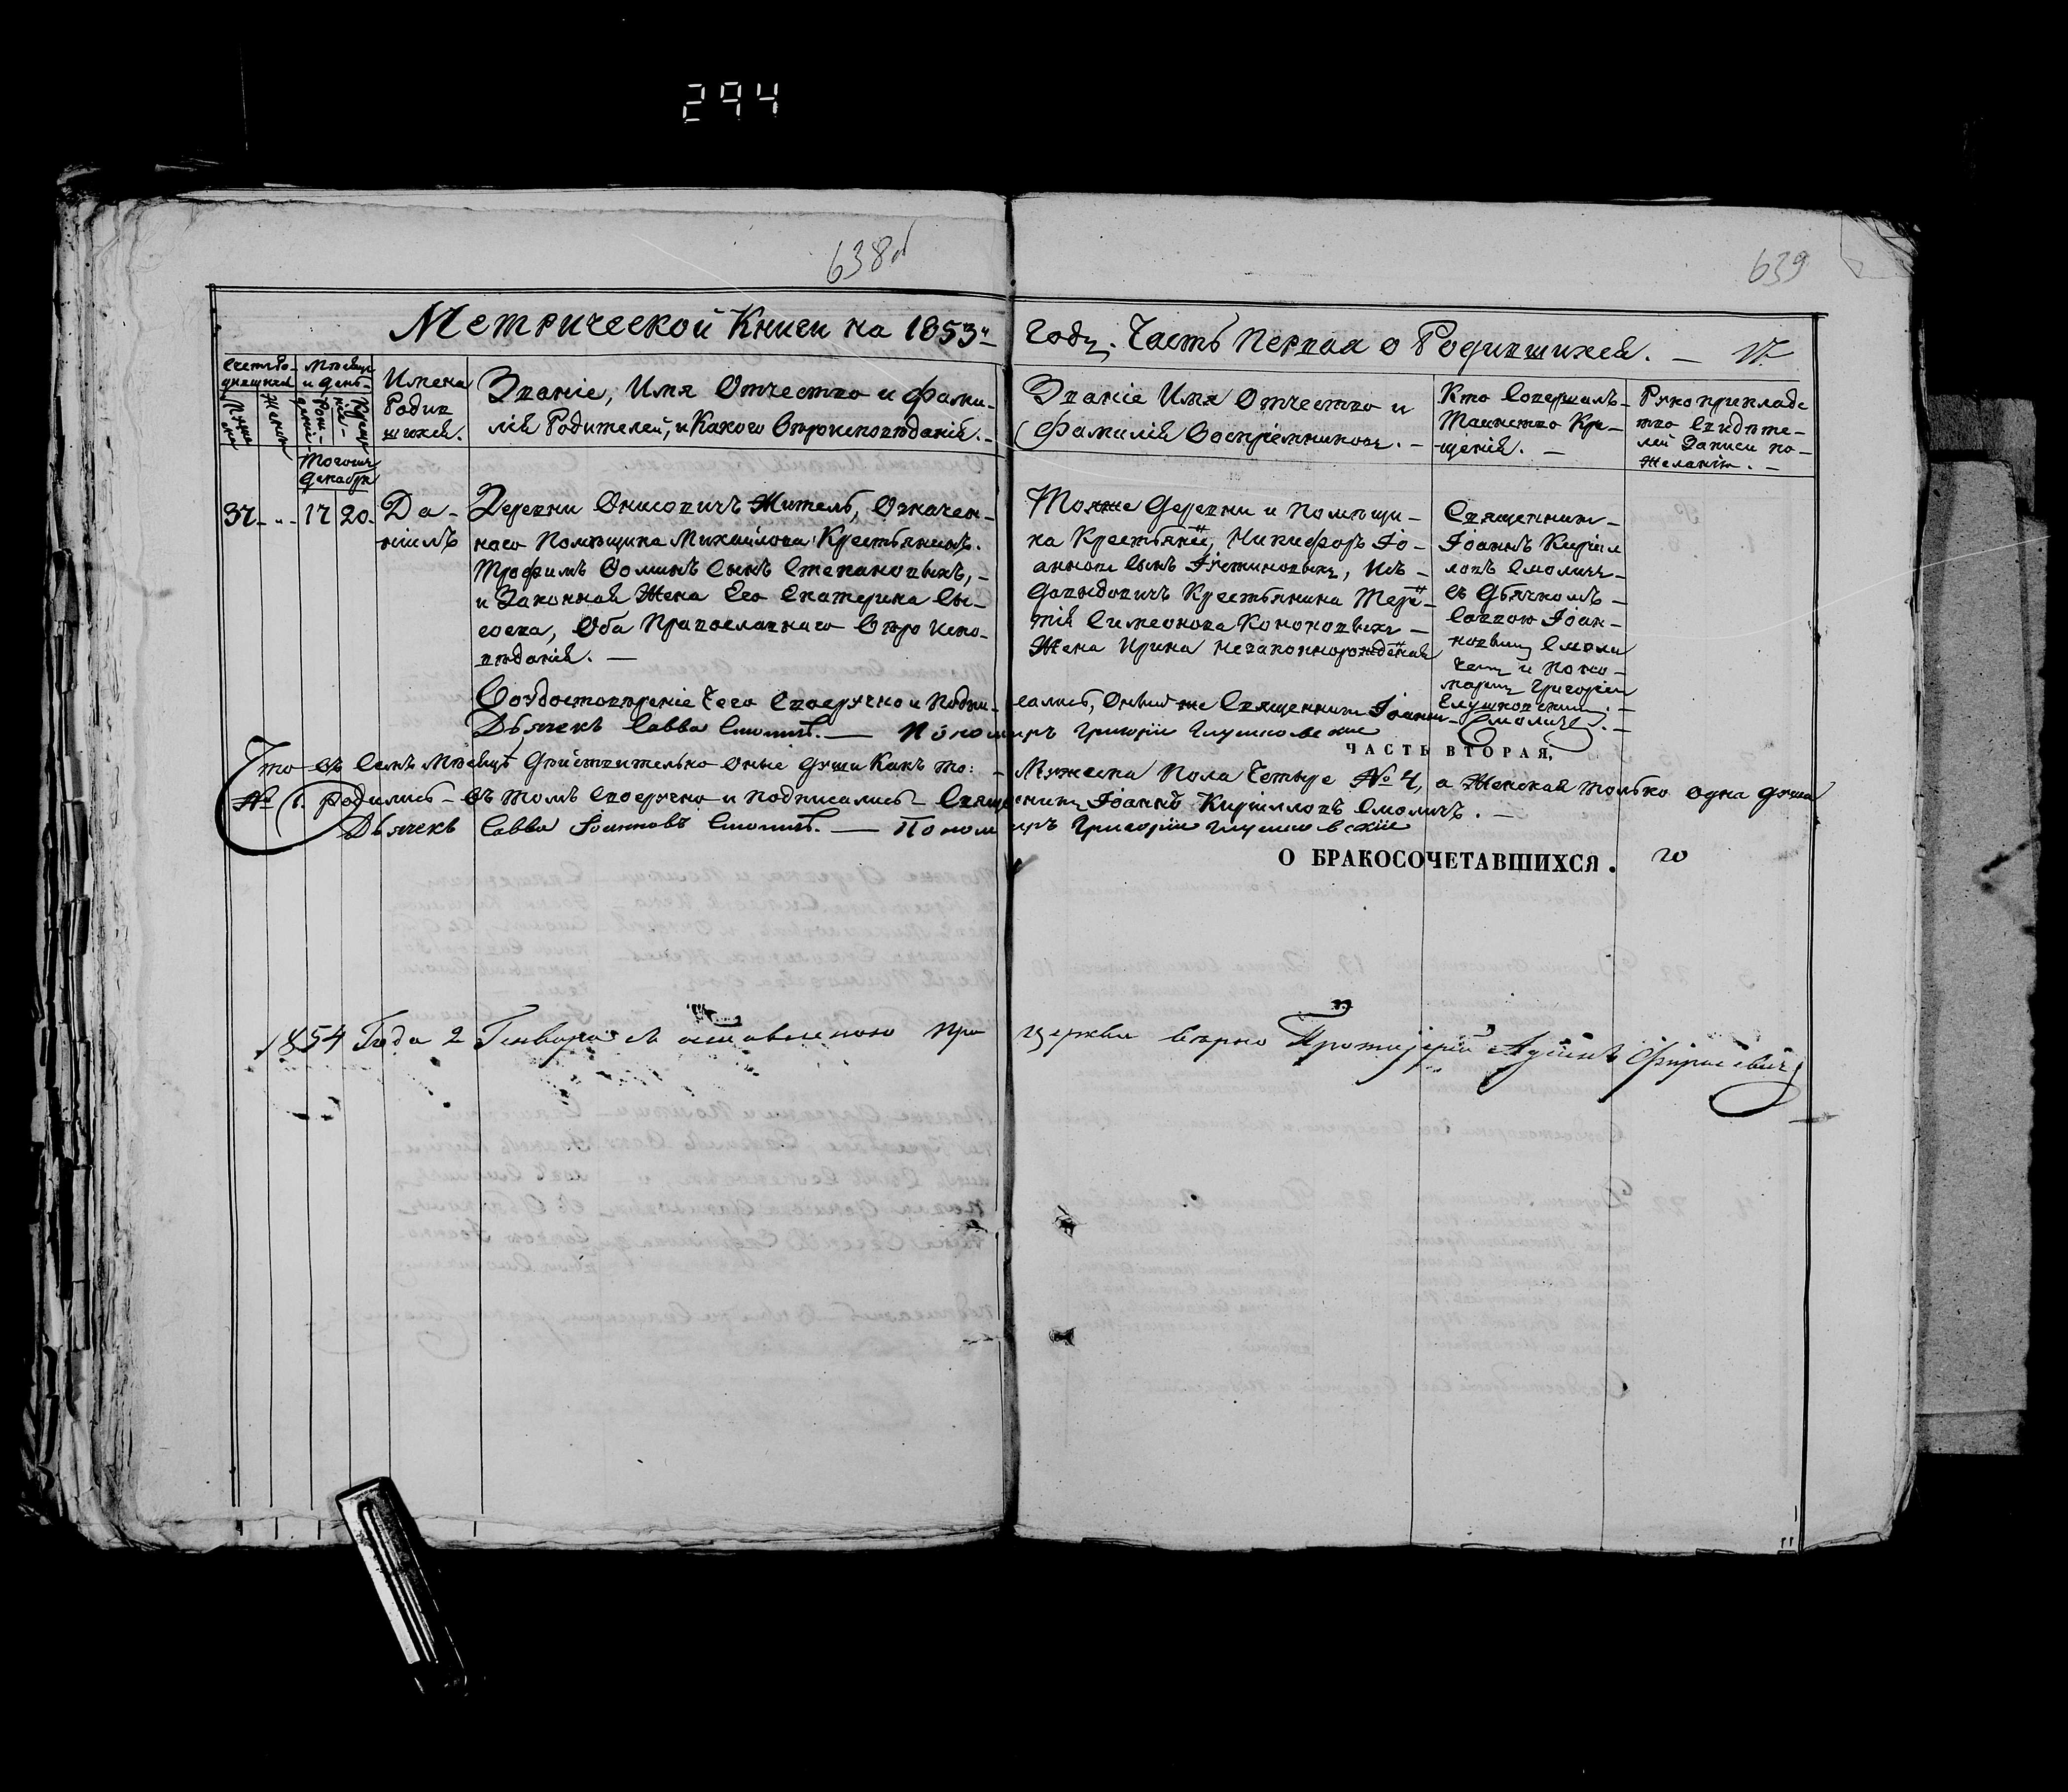 294
638об
639
Метрической Книги на 1853й
Году. Часть Первая о Родившихся. — 17.
Счетъ Ро-
дившихся
Мужеска
Женска
Мѣсяцъ
и День
Рож-
денія
Креще-
нія
Имена
Родив
шихся.
Званіе, Имя Отчество и Фами-
лія Родителей, и Какого Вѣроисповѣданія. —
Званіе Имя Отчество и
Фамилія Воспріемниковъ. —
Кто Совершалъ
Таинство Кре-
щенія. —
Рукоприкладс
тво Свидѣте-
лей Записи по-
желанію. —
Тогожъ
Декабря
37 — „ — 17 20.
Да-
ніилъ
Деревни Онисовичъ Житель, Означен-
наго Помѣщика Михайлова Крестьянинъ.
Трофимъ Ѳоминъ Сынъ Степановыхъ, —
и Законная Жена Его Екатерина Сы-
соева, Оба Православнаго Вѣро Испо-
вѣданія. —
Тояже Деревни и Помѣщи-
ка Крестьяне, Никифоръ Іо-
анновъ Сынъ, Изъ-
Давыдовичъ Крестьянина Терен-
тія Симеонова Кононовыхъ —
Жена Ирина незаконнорожденная
Священникъ —
Іоаннъ Кирил
ловъ Смоличъ —
съ Дьячкомъ —
Саввою Іоан-
новымъ Смоли
чемъ и Поно-
маремъ Григоріемъ
Глушковскимъ. —
Воудостовѣреніе Чего Своеручно и Подпи-
сались, Оный же Священникъ Іоаннъ Смоличъ. —
Дьячекъ Савва Смоличъ. — Пономарь Григорій Глушковскій
ЧАСТЬ ВТОРАЯ,
Что въ Семъ Мѣсяцѣ Дѣйствительно оныя души Какъ то: — Мужеска Пола Четыре № 4, а Женская только одна душа
№ 1. родились — въ томъ Своеручно и подписались — Священникъ Іоаннъ Кирилловъ Смоличъ. —
Дьячекъ Савва Іоанновъ Смоличъ. — Пономарь Григорій Глушковскій
О БРАКОСОЧЕТАВШИХСЯ. 20
1854 Года 2 Генваря съ оставленою при церкви вѣрно Протоіерей